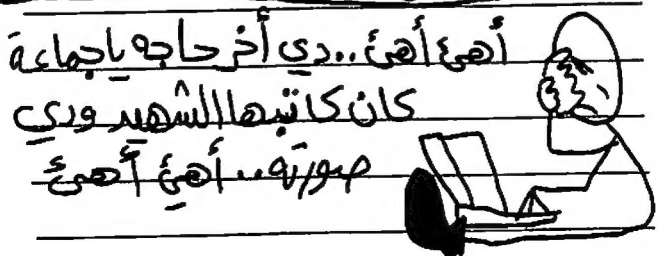 أهئ أهئ .. دي أخر حاجه ياجماعة
كان كاتبها الشهيد ودي
صورته .. أهئ أهئ